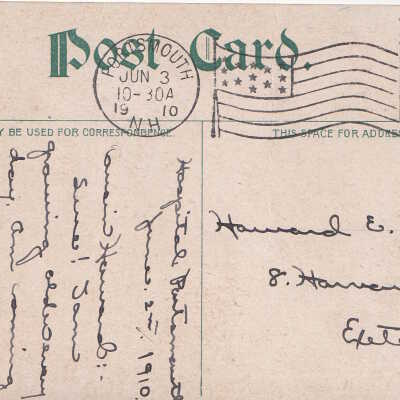 Post Card.
PORTSMOUTH
JUN 3
10-30A
19 10
N.H.
Y BE USED FOR CORRESPONDENCE
THIS SPACE FOR ADDRES
Hospital Portsmouth
June 2nd, 1910.
Howard:-
Sure! I am
growing
day. Am
Howard E.
8. Harv
Exet